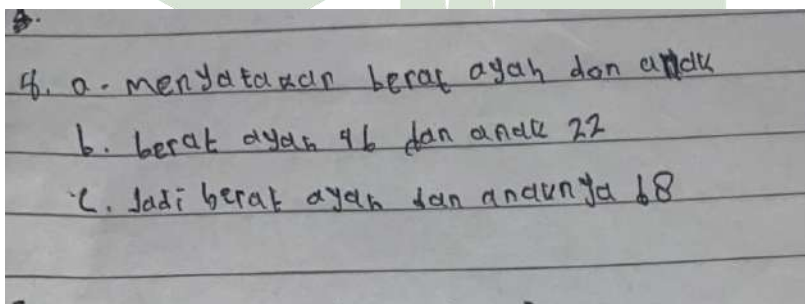 8. a. menyatakan berat ayah dan anak
b. berat ayah 46 dan anak 22
c. Jadi berat ayah dan anaknya 68